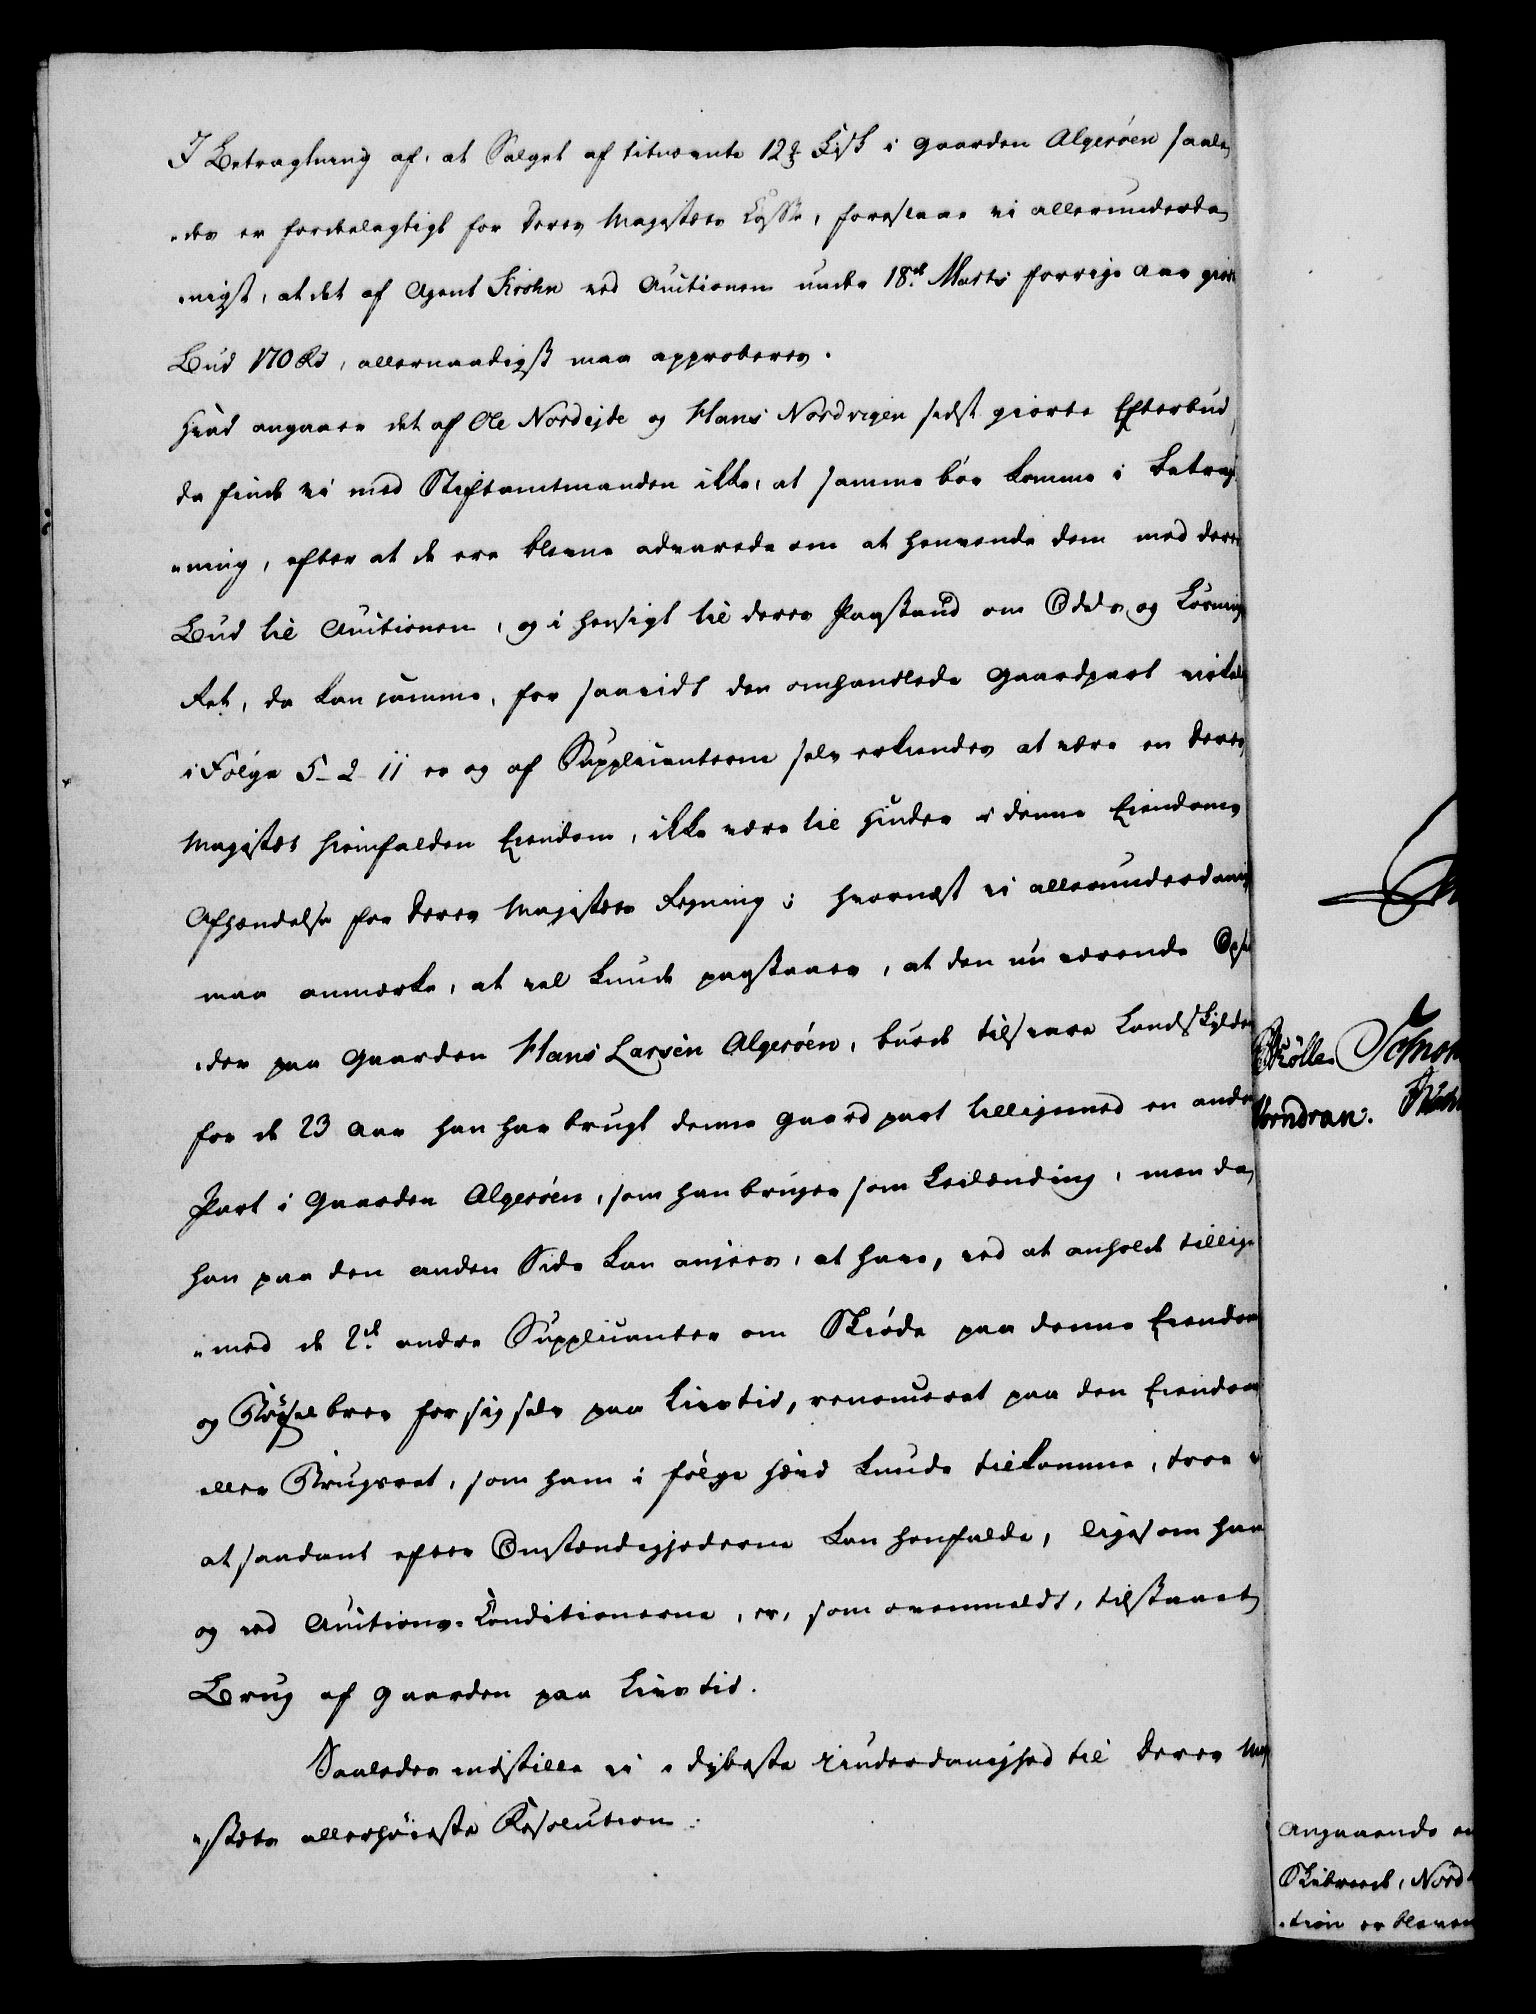 I Betragtning af, at Salget af bemeldte 12 ℔ Fisk i Gaarden Algerøen saale
„des er fordelagtigt for Deres Majestæts Casse, foreslaae vi allerunderda
„nigst, at det af Agent Krohn ved Auctionen under 18de Marts forrige Aar giorte
Bud 170 Rd, allernaadigst maa approberes.
Hvad angaaer det af Ole Nordejde og Hans Nordvigen sidst giorte Efterbud,
da finde vi med Stiftamtmanden ikke, at samme bør komme i Betragt
„ning, efter at de ere blevne advarede om at henvende dem med deres
Bud til Auctionen, og i Hensigt til deres Paastand om Odels og Løsnings
Ret, da kan samme, for saavidt den omhandlede Gaardpart virkelig
i Følge 5-2-11 er og af Supplicanterne selv erkiendes at være en Deres
Majestæt hiemfalden Eiendom, ikke være til Hinder i denne Eiendoms
Afhændelse for Deres Majestæts Regning; hvornæst vi allerunderdanigst
maa anmærke, at vel kunde paastaaes, at den nu værende Opsid
„der paa Gaarden Hans Larsen Algerøen, burde tilsvare Landskylden
for de 23 Aar han har brugt denne Gaardpart tilligemed en anden
Part i Gaarden Algerøen, som han bruger som Leilænding, men da
han paa den anden Side kan ansees, at have, ved at anholde tillige
„med de 2de andre Supplicanter om Skiøde paa denne Eiendom
og Bøxelbrev for sig selv paa Livstid, renonceret paa den Eiendom
eller Brugsret, som ham i følge Hævd kunde tilkomme, troe vi
at saadant efter Omstændighederne kan henfalde, ligesom han
og ved Auctions-Conditionerne, er, som ovenmeldt, tilstaaet
Brug af Gaarden paa Livstid.
Saaledes indstille vi i dybeste Underdanighed til Deres Maj
„estæts allerhøieste Resolution:
Angaaende en
Skibreede, Nord
„tion er bleven